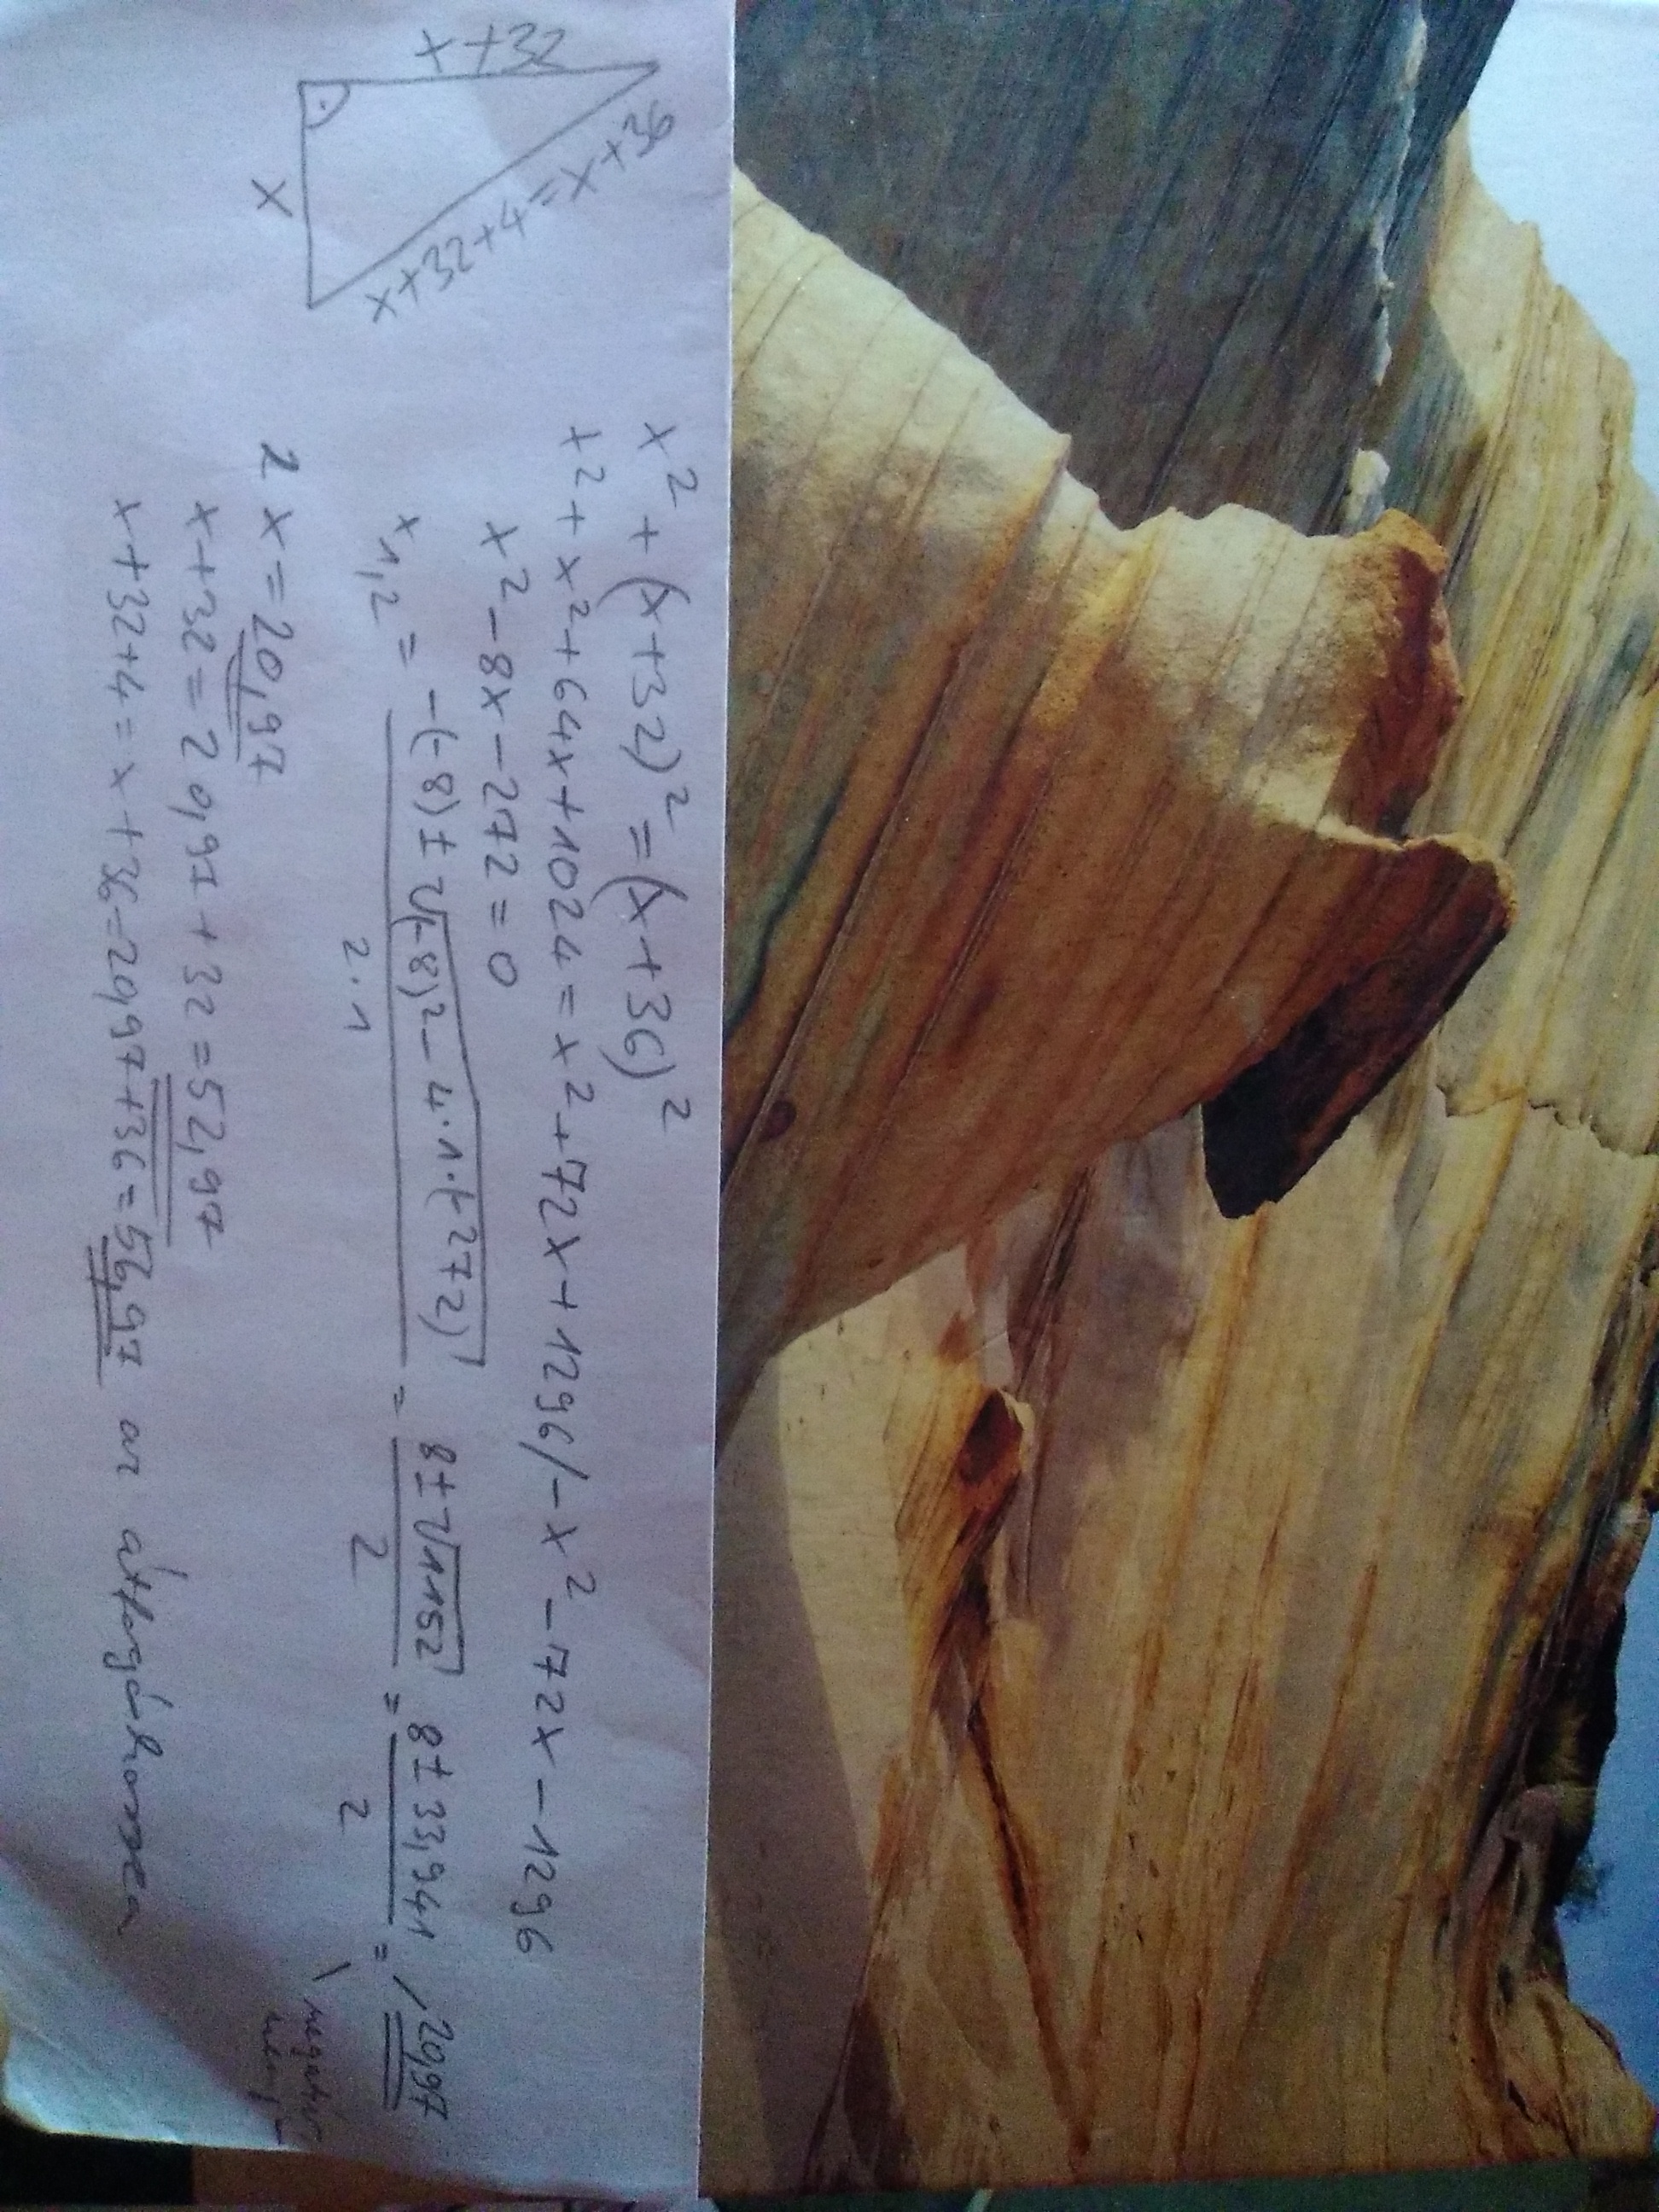 x+32
x
x+32+4=x+36
x²+(x+32)²=(x+36)²
x²+x²+64x+1024=x²+72x+1296/-x²-72x-1296
x²-8x-272=0
x1,2 = -(-8)±√(-8)²-4·1·(-272) / 2·1 = 8±√1152 / 2 = 8±33,941 / 2 = 20,97
negatív
nem jó
x=20,97
x+32=20,97+32=52,97
x+32+4=x+36=20,97+36=56,97 az átfogó hossza